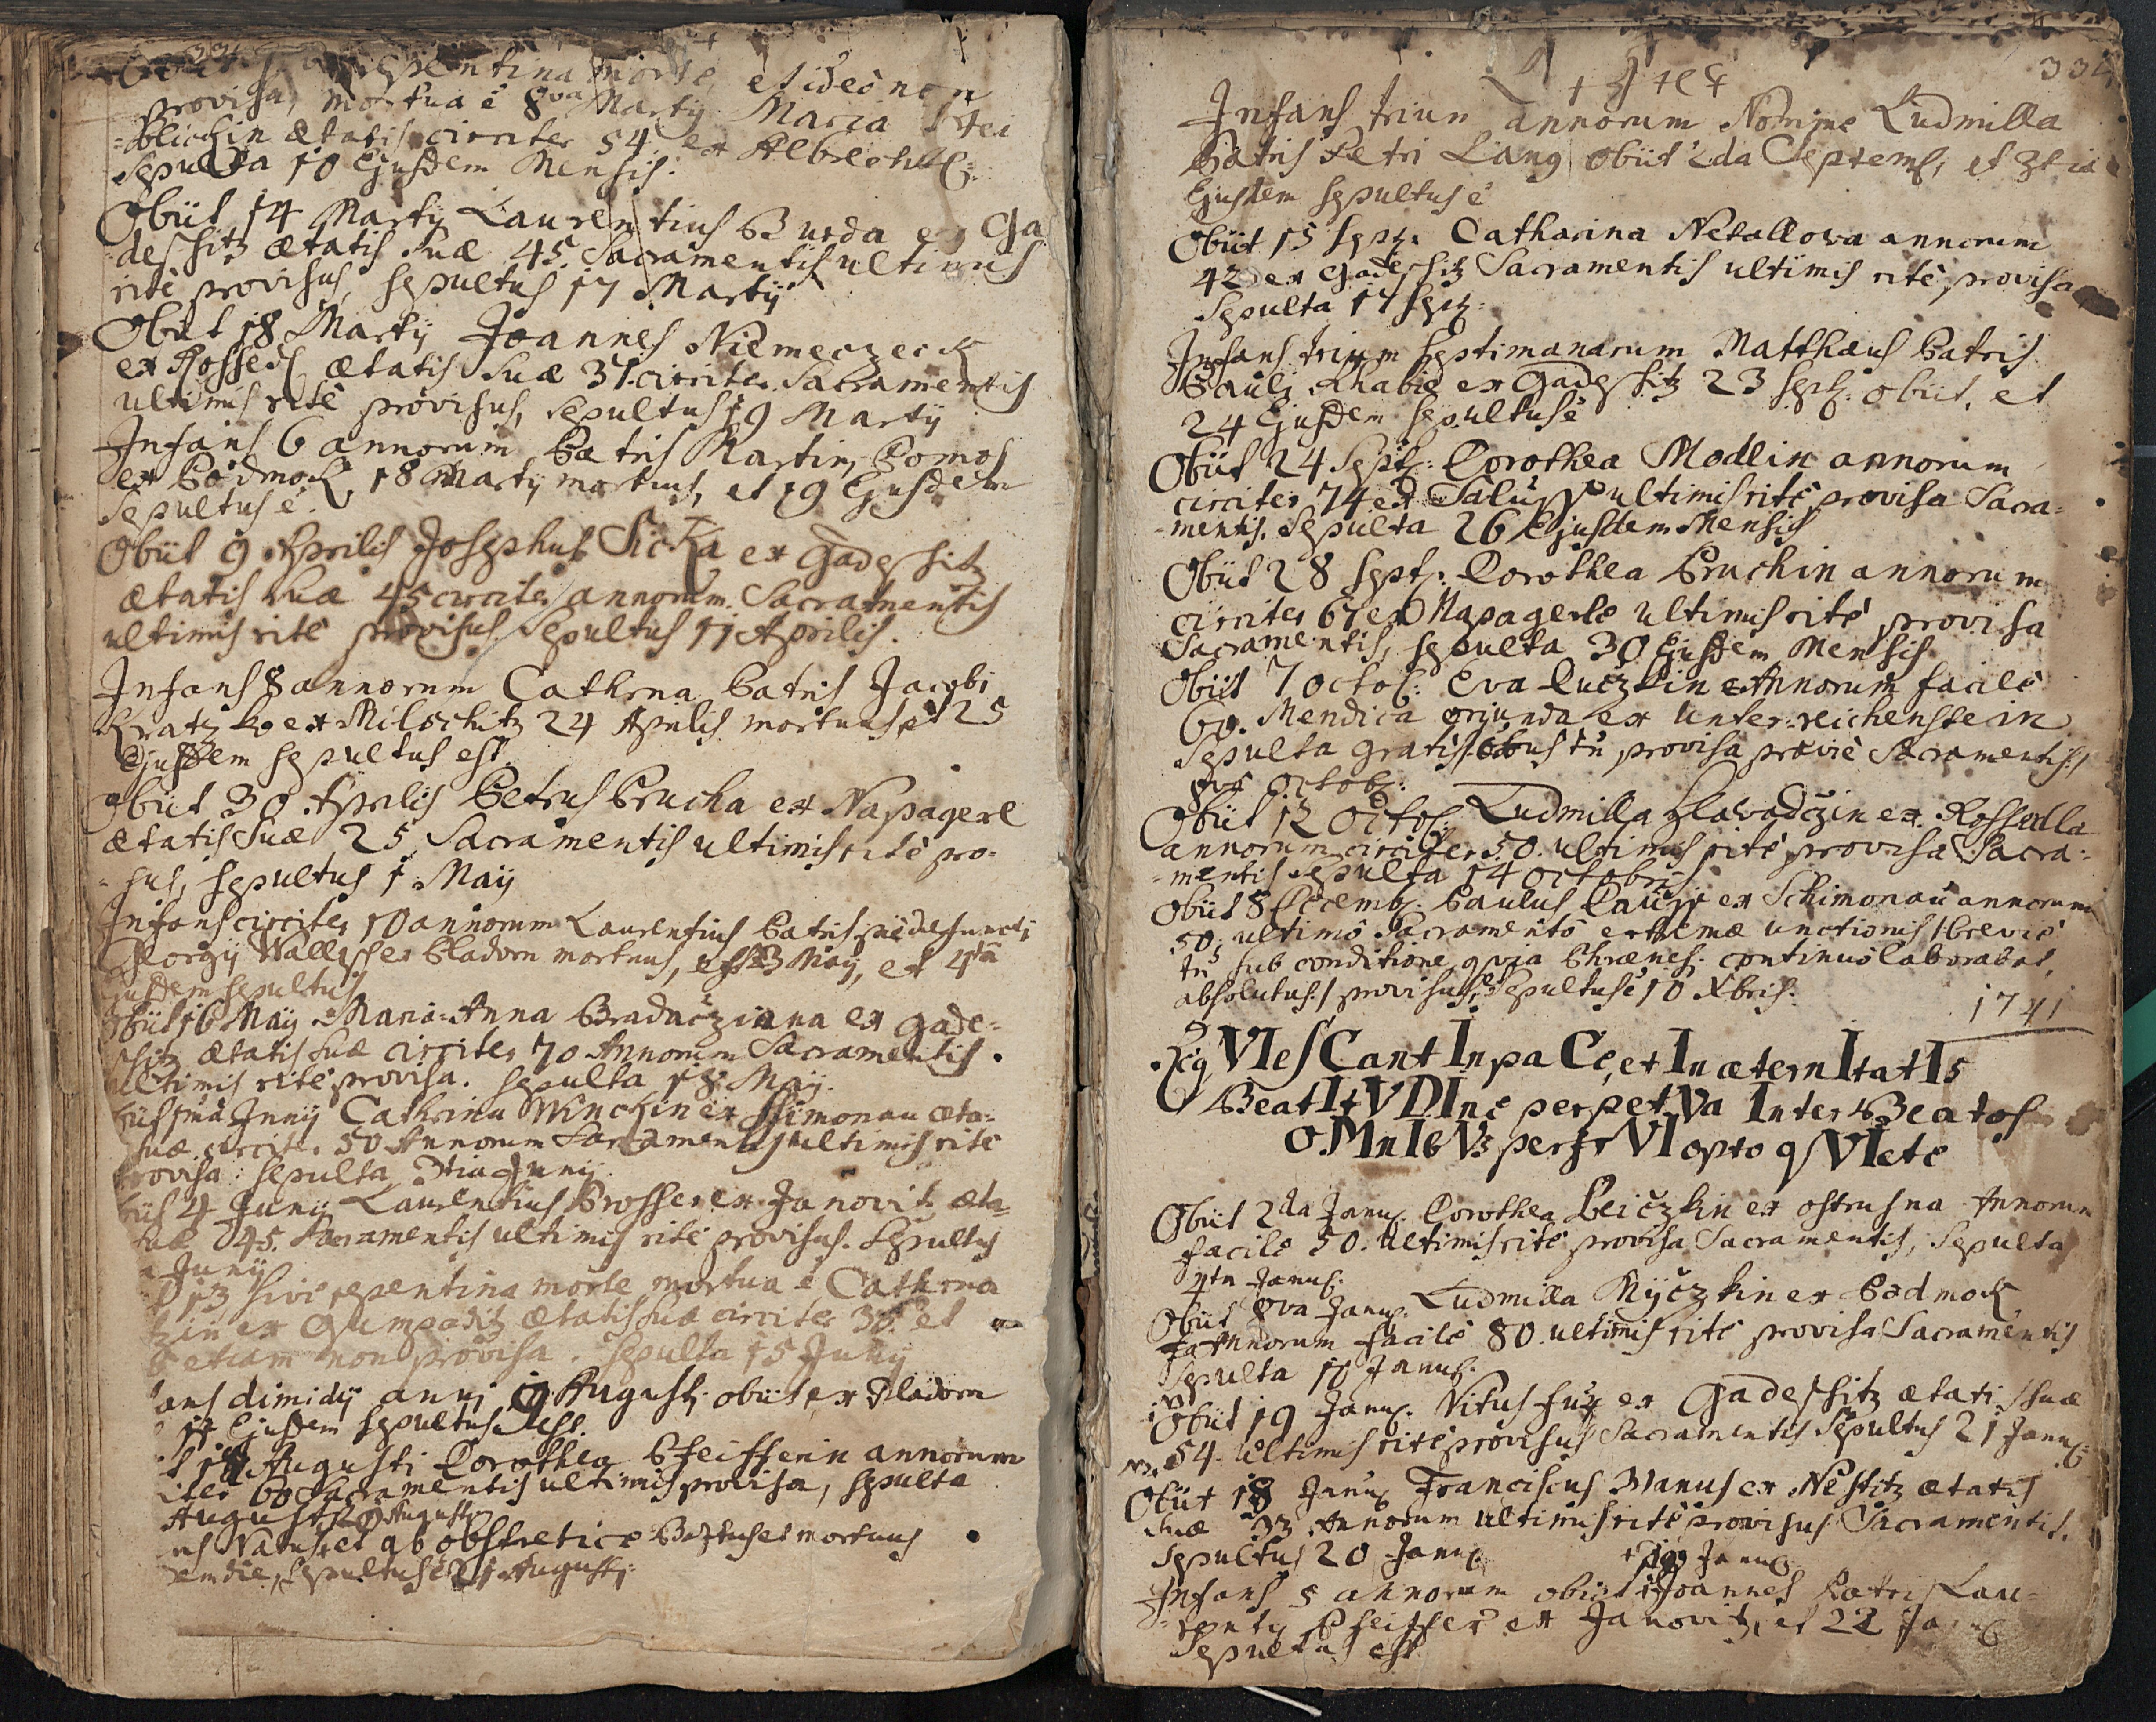 repentina morte et ideo non
provisa, mortua ē 8va Martij Maria Stei
=blichin ætatis circiter 54 ex Albrechts:
Sepulta 10 Ejusdem Mensis.
Obiit 14 Martij Laurentius Burda ex Ga
desshitz ætatis suæ 45 Sacramentis ultimis
ritè provisus, sepultus 17 Martij
Obiit 18 Martij Joannes Niemeczeck
ex Rossed ætatis suæ 31 circiter Sacramentis
ultimis ritè provisus, sepultus 19 Martij
Infans 6 annorum Patris Martini Pomos
ex Podmok 18 Martij mortuus, et 19 Ejusdem
Sepultus ē.
Obiit 9 Aprilis Josephus Sicka ex Gadesshitz
ætatis suæ 45 circiter annorum Sacramentis
ultimis ritè provisus. Sepultus 11 Aprilis.
Infans 8 annorum Cathrna Patris Jacobi
Kratzko ex Miloschitz 24 Aprilis mortuus, et 25
Ejusdem sepultus est.
Obiit 30 Aprilis Petrus Prucha ex Napagerl
Ætatis suæ 25 Sacramentis ultimis ritè pro-
-sus, sepultus 1 Maij
Infans circiter 10 annorum Laurentius Patris defuncti
Georgij Wallisch ex Pladorn mortuus, est 3 Maij, et 4ta
Ejusdem sepultus
Obiit 16 Maij Maria Anna Bradacziana ex Gade=
shitz ætatis suæ circiter 70 Annorum Sacramentis
ultimis ritè provisa. Sepulta 18 Maij.
Junij Cathrina Winckin ex Simonau æta=
suæ circiter 50 Annorum Sacramentis ultimis ritè
provisa: sepulta 3tia Junij
4 Junij Laurentius Prosser ex Janovitz æta=
suæ 45. Sacramentis ultimis ritè provisus. Sepultus
Junij
13 sivè repentina morte mortua ē Cathrna
ex Gumpaditz ætatis suæ circiter 36 et
etiam non provisa. Sepulta 15 Junij
ans dimidij anni 9 Augusti obiit ex Pladorn
11 Ejusdem sepultus est.
Augusti Dorothea Pfeifferin annorum
iter 60 Sacramentis ultimis provisa, sepulta
Augusti
Natus et ab obstetrice Baptus et mortuus
em die, Sepultus ē 21 Augusti
334
Infans trium annorum Nomine Ludmilla
Patris Petri Lang obiit 2da Septemb, et 3tia
Ejusdem sepultus ē
Obiit 15 Sept: Catharina Netallowa annorum
42 ex Gadesshitz Sacramentis ultimis ritè provisa
Sepulta 17 Sept:
Infans trium septimanarum Matthæus Patris
Pauli Chabie ex Gadesshitz 23 Sept: obiit, et
24 Ejusdem sepultus ē
Obiit 24 Sept: Dorothea Modlin annorum
circiter 74 ex ultimis ritè provisa Sacra=
=mentis. Sepulta 26 Ejusdem Mensis
Obiit 28 Sept: Dorothea Pruchin annorum
circiter 67 ex Napagerle ultimis ritè provisa
Sacramentis, sepulta 30 Ejusdem Mensis
Obiit 7 Octob: Eva Luczkin Annorum facilè
60. Mendica oriunda ex Unter-reichenstein
Sepulta gratis provisa Sacramentis:/
Octob:
Obiit 12 Octob: Ludmilla Hlawadczin ex Rossedla
annorum circiter 50. ultimis ritè provisa Sacra=
-mentis Sepulta 14 Octobris
Obiit 8 Decemb: Paulus ex Schimonau annorum
50. ultimo Sacramento extremæ unctionis /: brevis
tn sub conditione, quia continuò laborabat,
absolutus:/ provisus, sepultus ē 10 Xbris.
1741
ReqVIesCant In paCe, et In æternItatIs
BeatItVDIne perpetVa Inter Beatos
oMnIbVs perfrVI opto qVIete
Obiit 2da Janu: Dorothea Leiczkin ex Ostrusna Annorum
facilè 50. Ultimis ritè provisa Sacramentis, Sepulta
4ta Janu:
Obiit 8va Janu: Ludmilla Nyczkin ex Podmok
Annorum facilè 80. ultimis ritè provisa Sacramentis
Sepulta 10 Janu:
Obiit 19 Janu: Vitus Fux ex Gadesshitz ætatis suæ
54. Ultimis ritè provisus Sacramentis Sepultus 21 Janu:
Obiit 18 Janu: Franciscus Manus ex Nestitz ætatis
suæ 33 Annorum ultimis ritè provisus Sacramentis.
Sepultus 20 Janu:
+ 19 Janu:
Infans 5 annorum obiit Joannes Patris Lau=
rentij Pfeiffer ex Janovitz, et 22 Janu:
Sepultus est